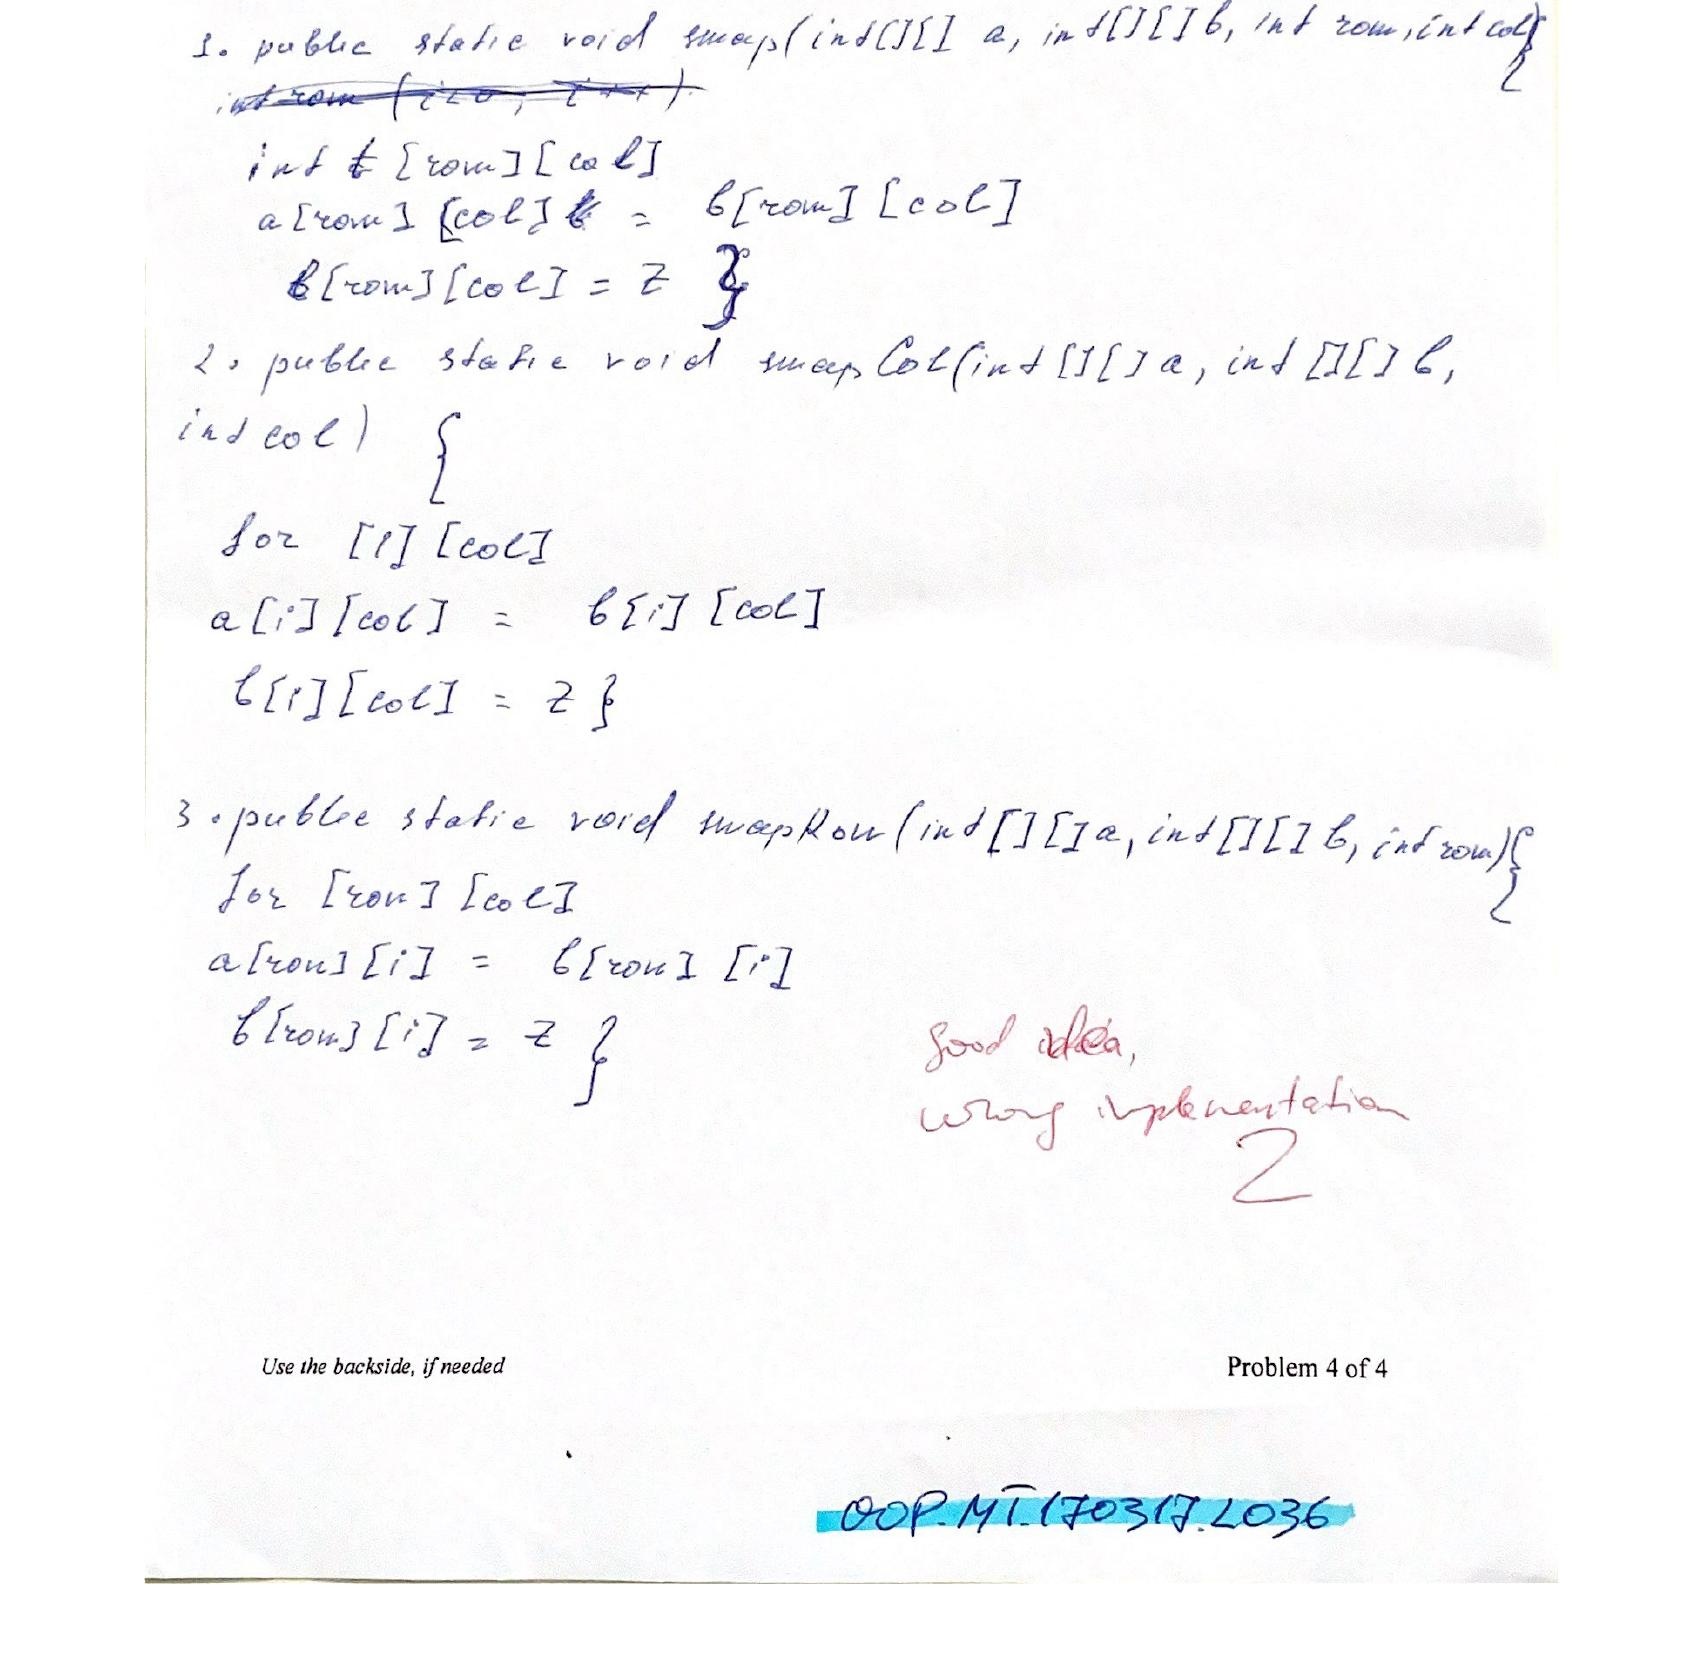 1. public static void swap(int[][] a, int[][] b, int row, int col){
int row (i<0, i++).
int t [row][col]
a[row] [col] = b[row] [col]
b[row][col] = z }
2. public static void swapCol(int [][] a, int [][] b,
int col) {
for [i] [col]
a[i][col] = b[i] [col]
b[i][col] = z }
3. public static void swapRow(int [][] a, int[][] b, int row){
for [row] [col]
a[row] [i] = b[row] [i]
b[row] [i] = z }
good idea,
wrong implementation
2
Use the backside, if needed
Problem 4 of 4
OOP.MT.170317.L036